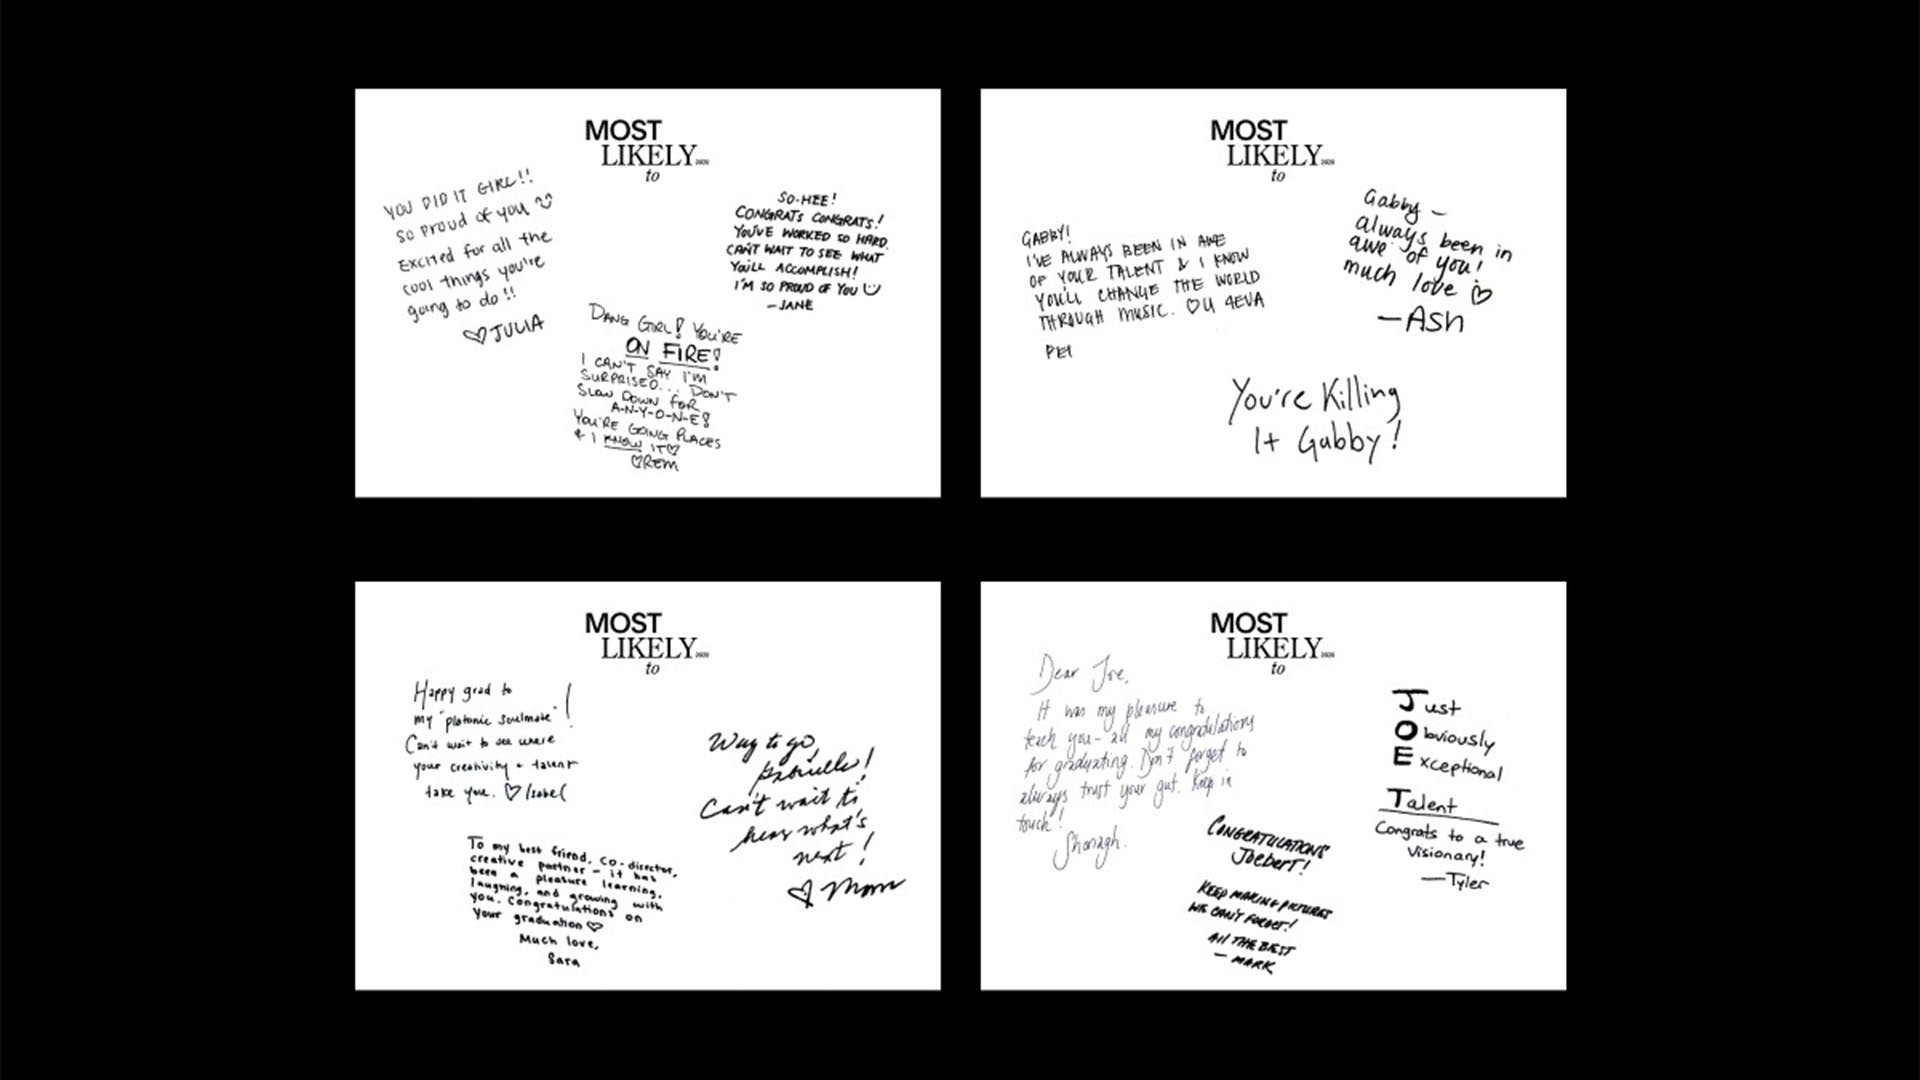 MOST
LIKELY 2020
to
YOU DID IT GIRL!!
so proud of you
Excited for all the
cool things you're
going to do!!
♡JULIA
SO-HEE!
CONGRATS CONGRATS!
YOU'VE WORKED SO HARD.
CAN'T WAIT TO SEE WHAT
YOU'LL ACCOMPLISH!
I'M SO PROUD OF YOU
—JANE
DANG GIRL! YOU'RE
ON FIRE!
I CAN'T SAY I'M
SURPRISED... DON'T
SLOW DOWN FOR
A-N-Y-O-N-E!
YOU'RE GOING PLACES
& I KNOW IT♡
♡REM
MOST
LIKELY 2020
to
GABBY!
I'VE ALWAYS BEEN IN AWE
OF YOUR TALENT & I KNOW
YOU'LL CHANGE THE WORLD
THROUGH MUSIC. ♡U 4EVA
PEI
Gabby —
always been in
awe of you!
much love ♡
—ASH
You're Killing
It Gabby!
MOST
LIKELY 2020
to
Happy grad to
my "platonic soulmate"!
Can't wait to see where
your creativity + talent
take you. ♡ Isabel
Way to go,
Gabrielle!
Can't wait to
hear what's
next!
♡ Mom
To my best friend, co-director,
creative partner - it has
been a pleasure learning,
laughing, and growing with
you. Congratulations on
your graduation ♡
Much love,
Sara
MOST
LIKELY 2020
to
Dear Joe,
It was my pleasure to
teach you - all my congratulations
for graduating. Don't forget to
always trust your gut. Keep in
touch!
Shonagh.
Just
Obviously
Exceptional
Talent
Congrats to a true
Visionary!
—Tyler
CONGRATULATIONS
JOEBERT!
KEEP MAKING PICTURES
WE CAN'T FORGET!
All THE BEST
— MARK